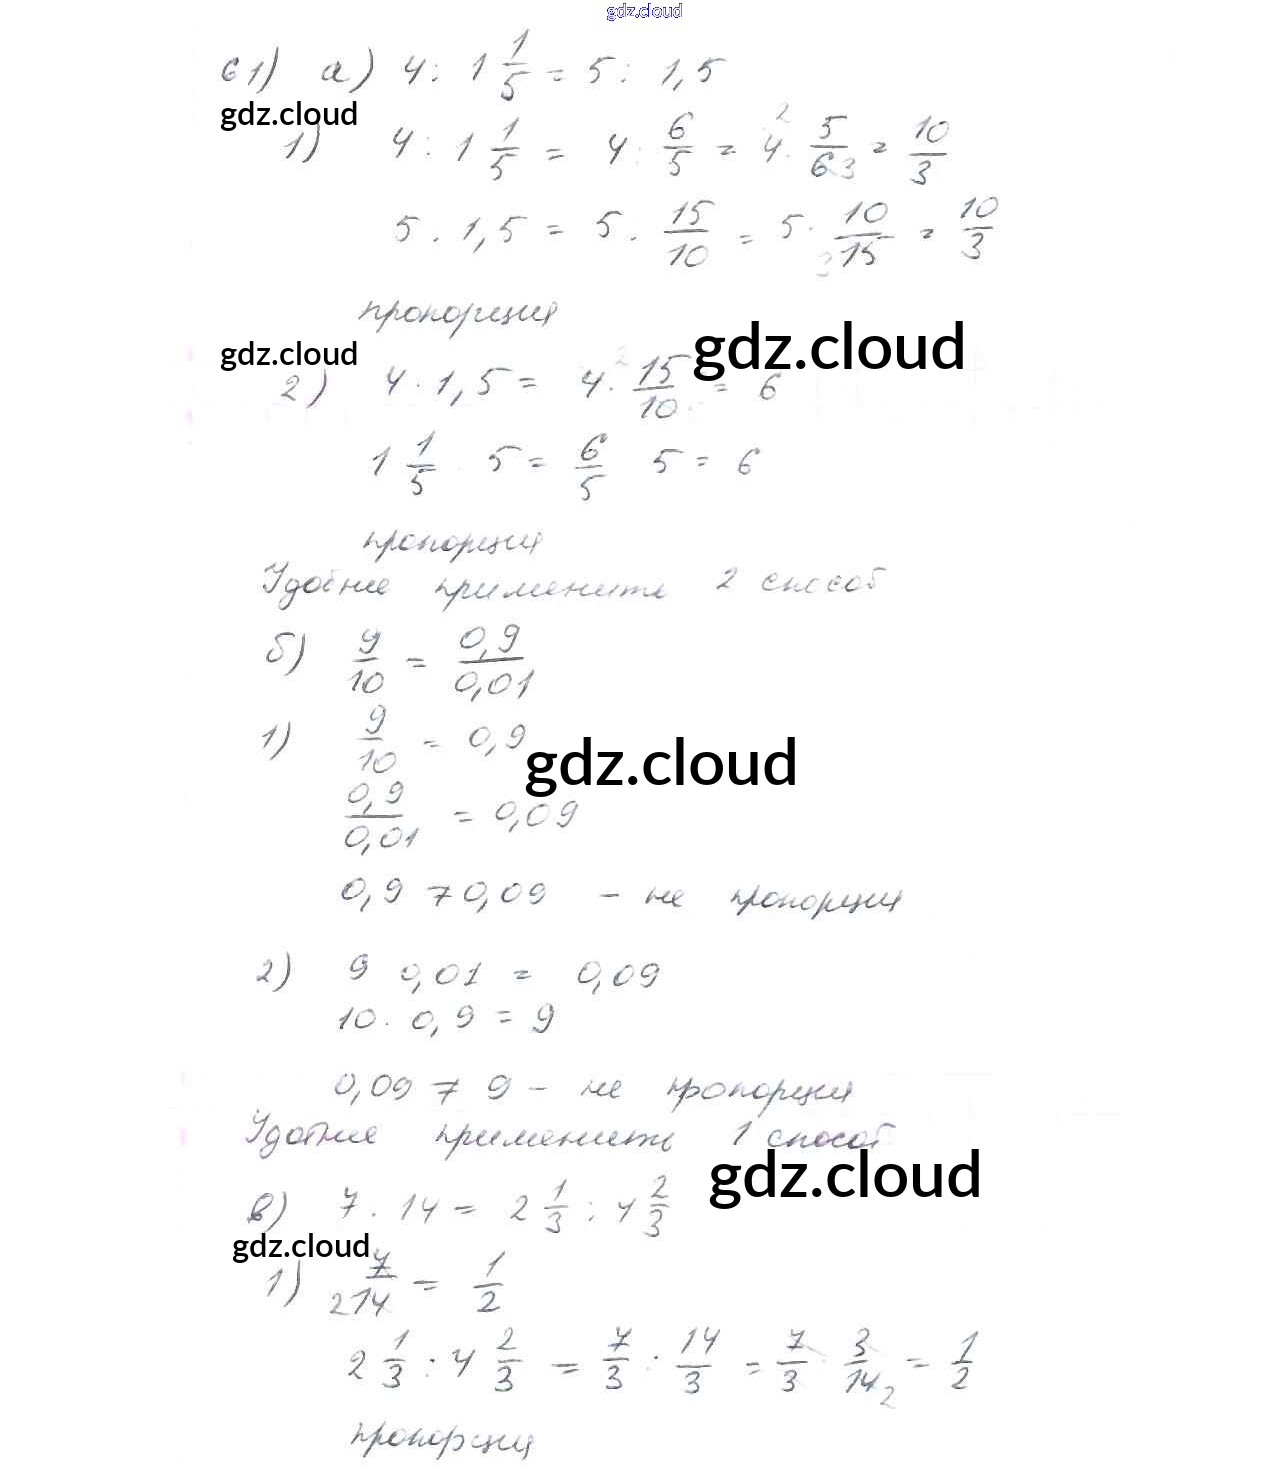 gdz.cloud
61) а) 4 : 1 1/5 = 5 : 1,5
gdz.cloud
1) 4 : 1 1/5 = 4 : 6/5 = 4 · 5/6 = 10/3
5 : 1,5 = 5 : 15/10 = 5 · 10/15 = 10/3
пропорция
gdz.cloud
gdz.cloud
2) 4 · 1,5 = 4 · 15/10 = 6
1 1/5 · 5 = 6/5 5 = 6
пропорция
Удобнее применить 2 способ
б) 9/10 = 0,9/0,01
1) 9/10 = 0,9
gdz.cloud
0,9/0,01 = 0,09
0,9 ≠ 0,09 - не пропорция
2) 9 0,01 = 0,09
10 · 0,9 = 9
0,09 ≠ 9 - не пропорция
Удобнее применить 1 способ
gdz.cloud
в) 7 : 14 = 2 1/3 : 4 2/3
gdz.cloud
1) 7/14 = 1/2
2 1/3 : 4 2/3 = 7/3 : 14/3 = 7/3 · 3/14 = 1/2
пропорция